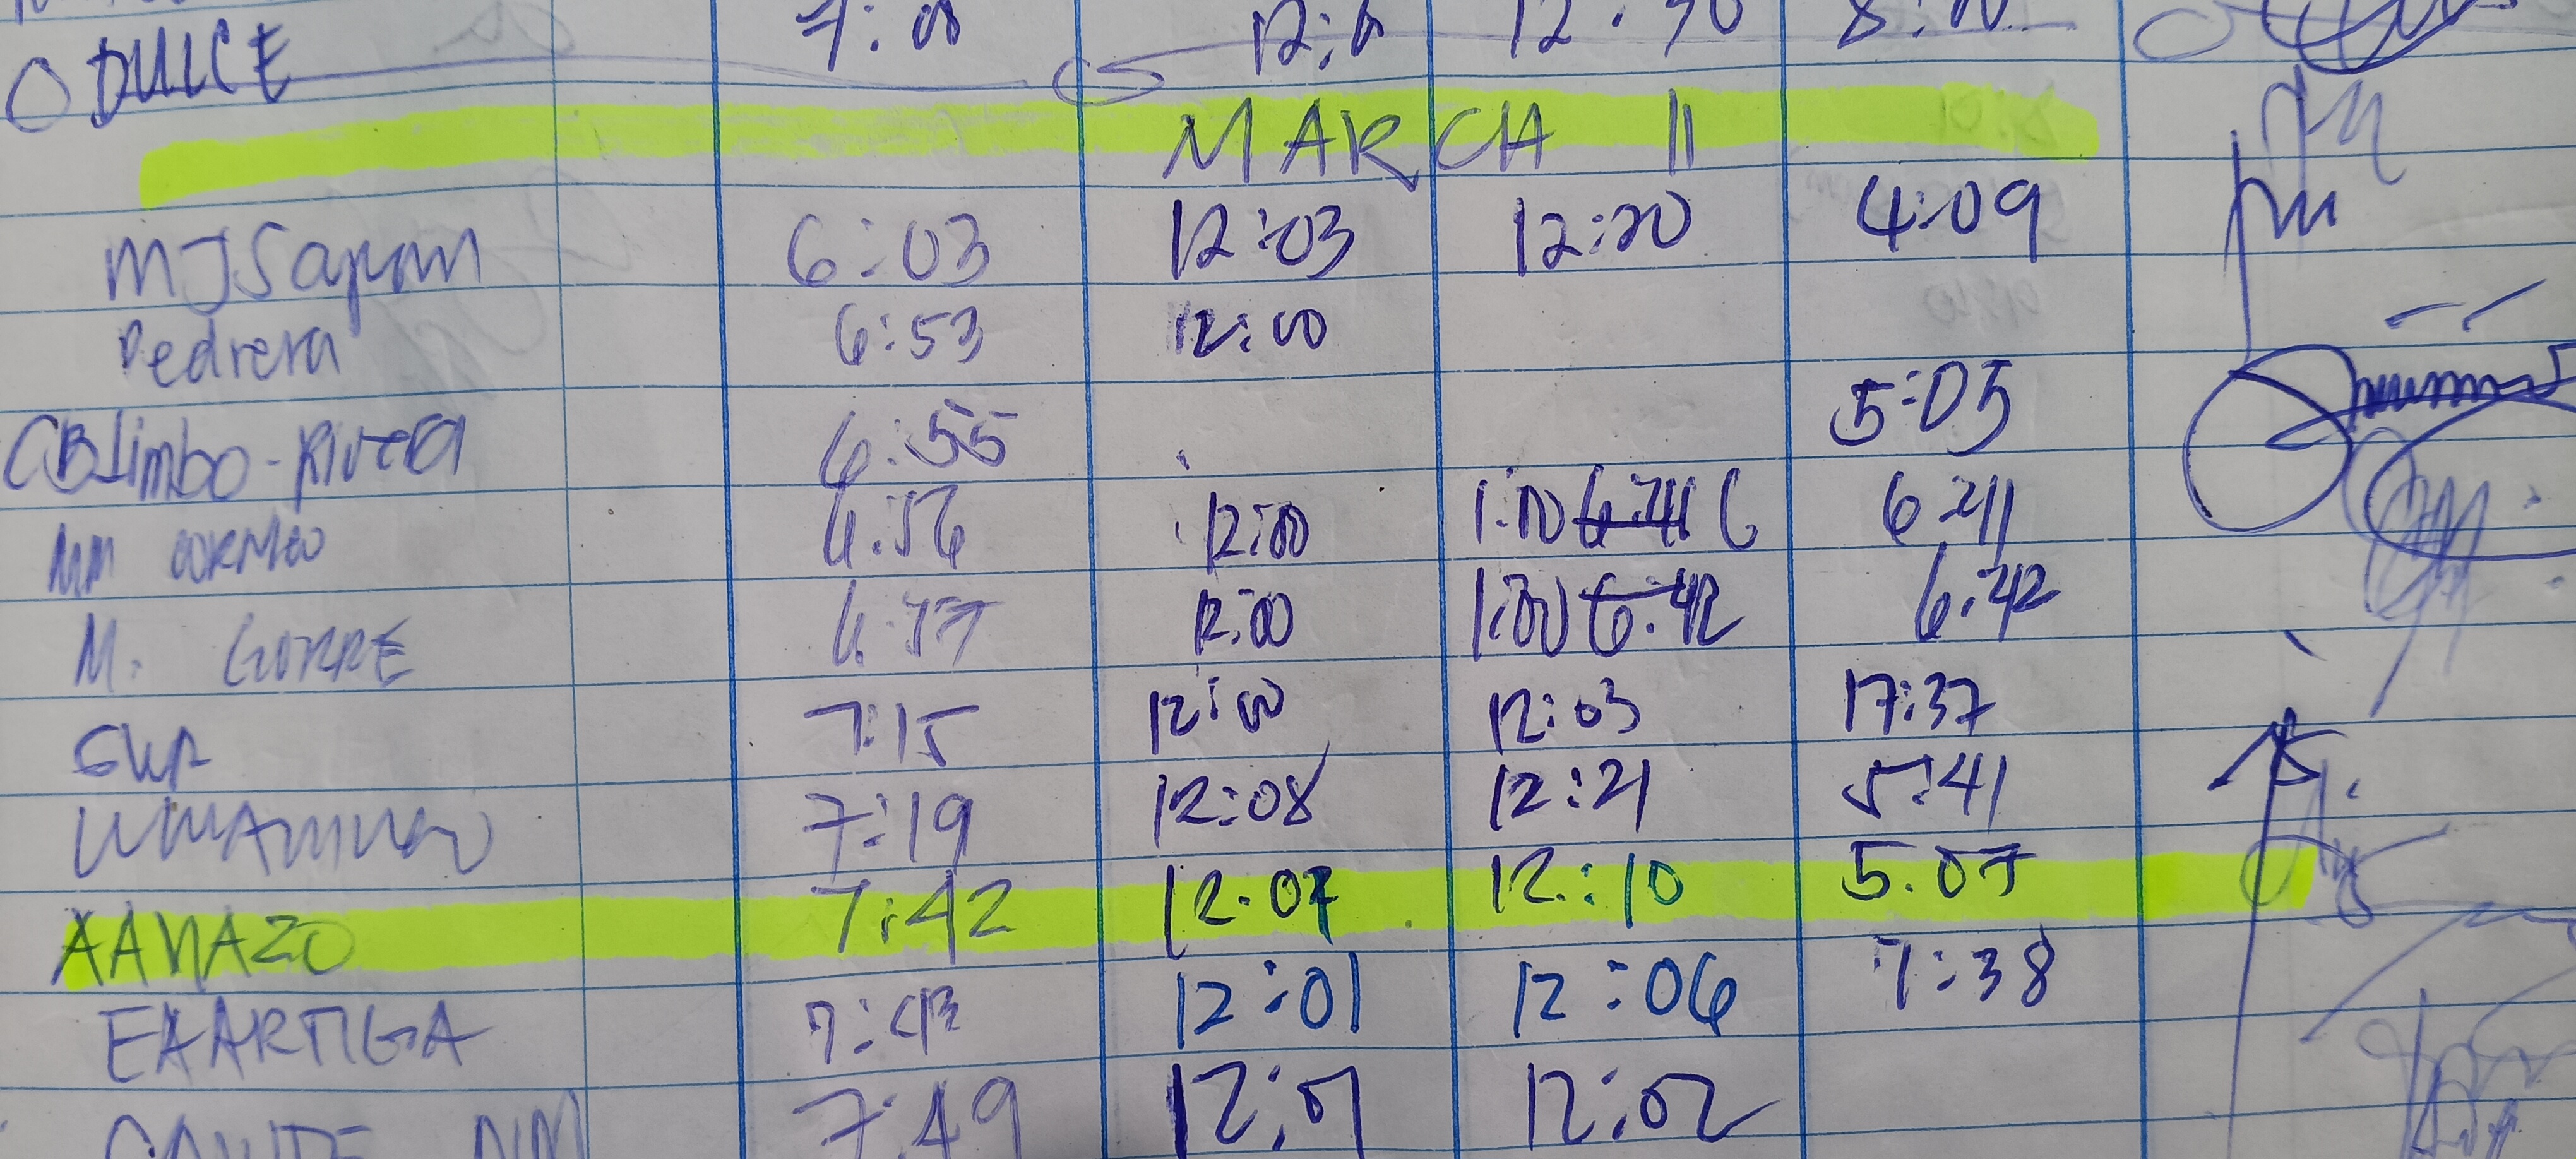 DULCE 7:00 12:0 12:30
MARCH 11
MJSapon 6:03 12:03 12:20 4:09
Pedrera 6:53 12:00
CBLimbo-Rivera 6:55 5:05
MM CORMEO 6:56 12:00 1:00 6:41 6 6:41
M. GORRE 6:57 12:00 1:00 6:42 6:42
7:15 12:00 12:03 17:37
7:19 12:08 12:21 5:41
AAÑAZO 7:42 12:07 12:10 5:07
EAARTIGA 7:43 12:01 12:06 7:38
7:49 12:01 12:02